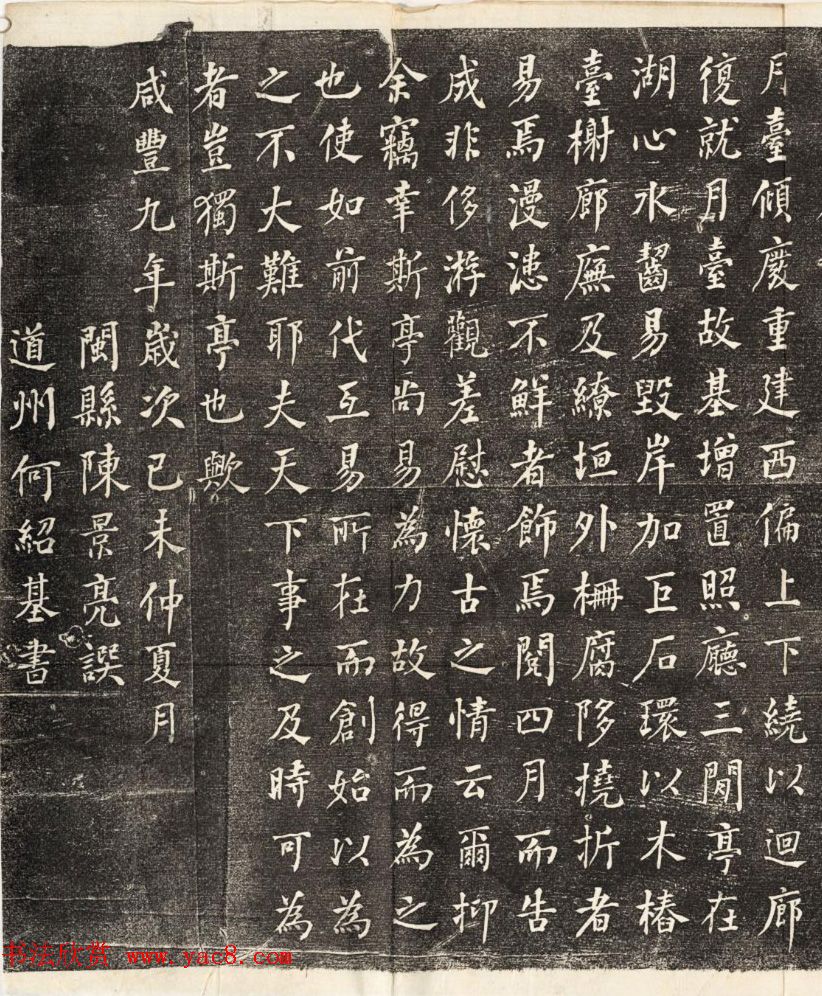 月臺傾廢重建西偏上下繞以迴廊
復就月臺故基增置照廳三閒亭在
湖心水齧易毀岸加巨石環以木樁
臺榭廊廡及繚垣外柵腐陊撓折者
易焉漫漶不鮮者飾焉閱四月而告
成非侈游觀差慰懷古之情云爾抑
余竊幸斯亭尚易為力故得而為之
也使如前代互易所在而創始以為
之不大難耶夫天下事之及時可為
者豈獨斯亭也歟
咸豐九年歲次己未仲夏月
閩縣陳景亮譔
道州何紹基書
书法欣赏 www.yac8.com